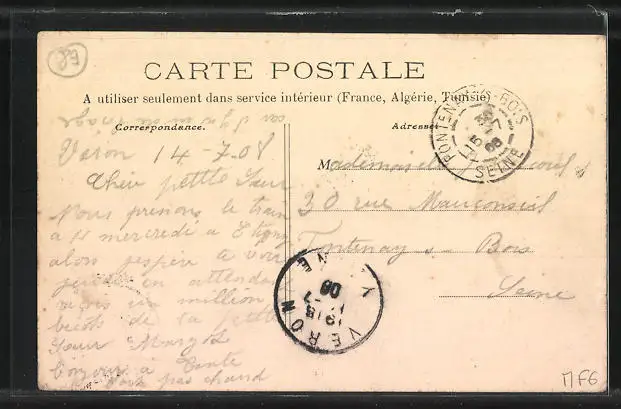 Ed
CARTE POSTALE
A utiliser seulement dans service intérieur (France, Algérie, Tunisie)
Correspondance.
Adresse
Véron 14-7.08
Chère petite Sœur
Nous prenons le train
a mercredi a Etigny
alors j'espère te voir
jeudi en attendant
reçois un million
de la petite
Sœur Margot
bonjour a Tante
pas chaud
Mademoiselle
30 rue Mauconseil
Fontenay s- Bois
Seine
FONTENAY-S-BOIS
SEINE
VERON
MF6